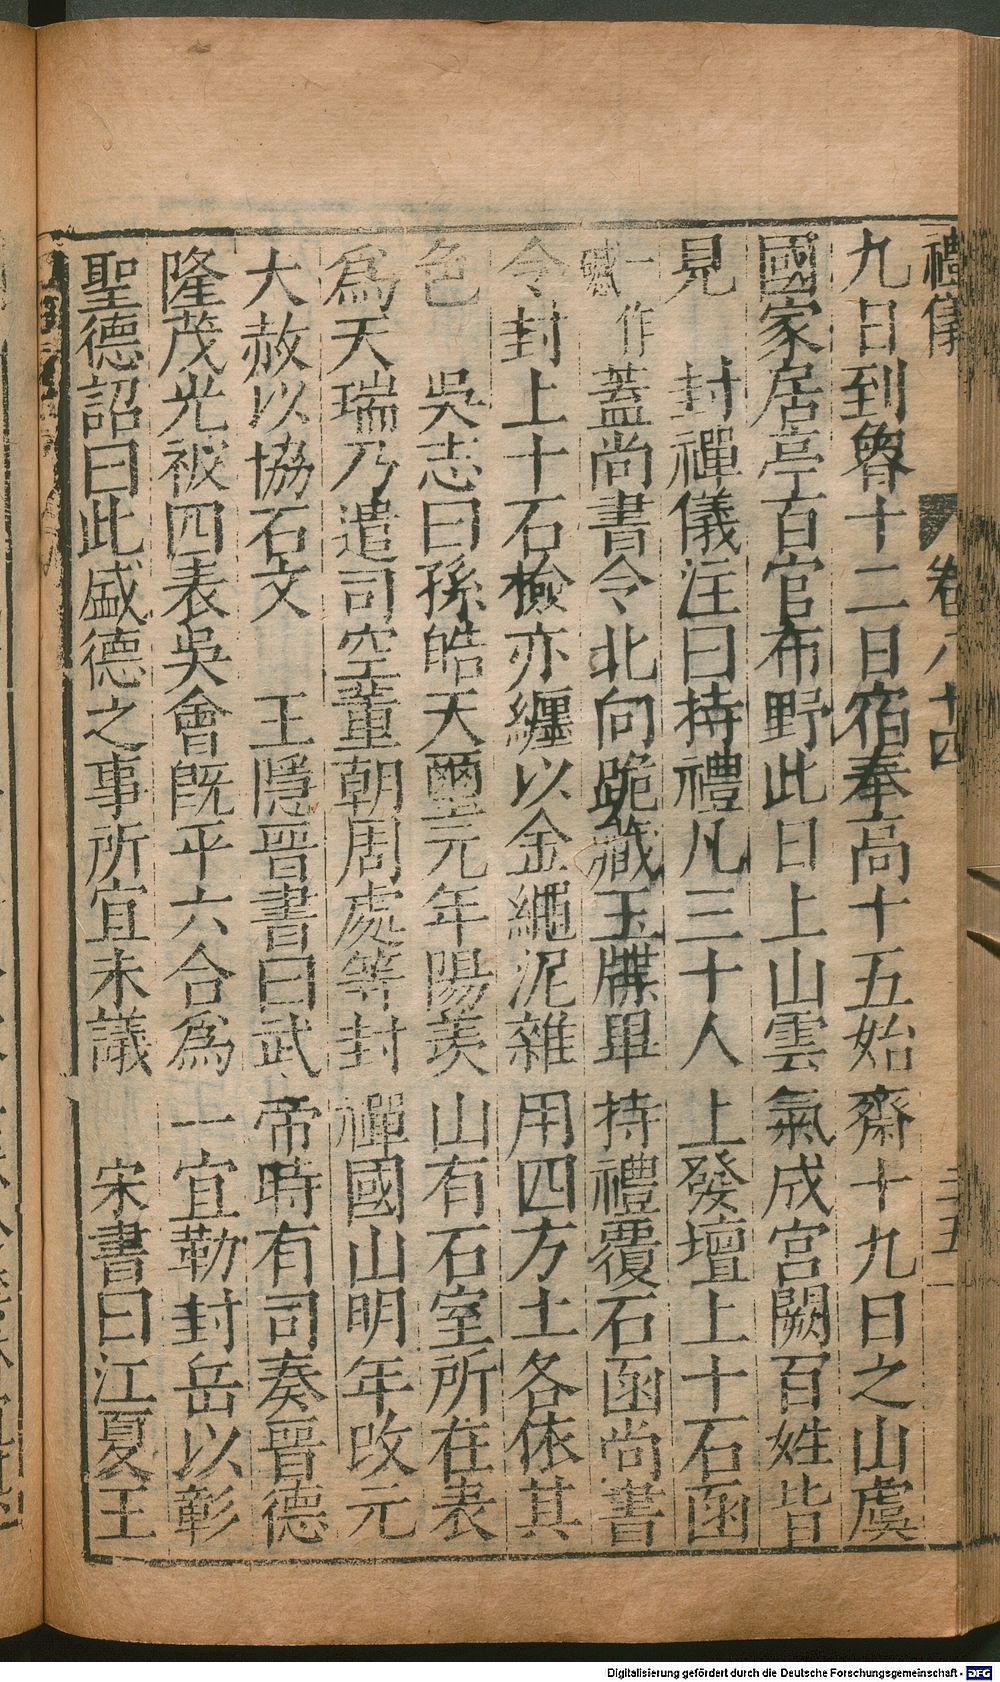 禮儀　卷　十四
九日到魯十二日宿奉高十五始齋十九日之山虞
國家居亭百官布野此日上山雲氣成宮闕百姓皆
見　封禪儀注曰持禮凡三十人上發壇上十石函
一作　蓋尚書令北向跪藏玉牒畢持禮覆石函尚書
令封上十石檢亦纏以金繩泥雜用四方土各依其
色　吳志曰孫皓天璽元年陽羨山有石室所在表
爲天瑞乃遣司空董朝周處等封禪國山明年改元
大赦以協石文　王隱晉書曰武帝時有司奏晉德
隆茂光被四表吳會既平六合爲一宜勒封岳以彰
聖德詔曰此盛德之事所宜未議　宋書曰江夏王
Digitalisierung gefördert durch die Deutsche Forschungsgemeinschaft - DFG